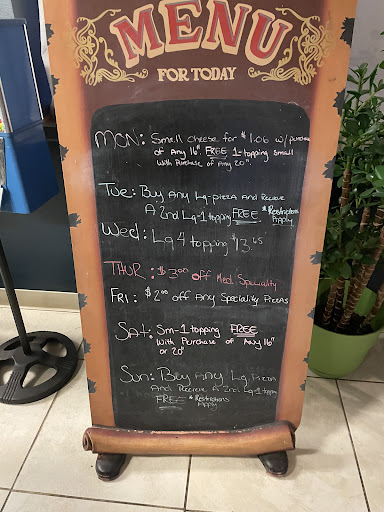 MENU
FOR TODAY
MON: Small cheese for $1.06 w/purchase
of Any 16". FREE 1-topping small
with Purchase of Any 20".
Tue: Buy Any Lg-pizza And Receive
A 2nd Lg-1 topping FREE *Restrictions
Apply
Wed: Lg 4 topping $13.
THUR: $3.00 off Med Speciality
FRI: $2.00 off Any Speciality Pizzas
SAT: Sm-1 topping FREE
With Purchase of Any 16"
or 20"
Sun: Buy Any Lg Pizza
And Receive A 2nd Lg-1 topping
FREE *Restrictions
Apply